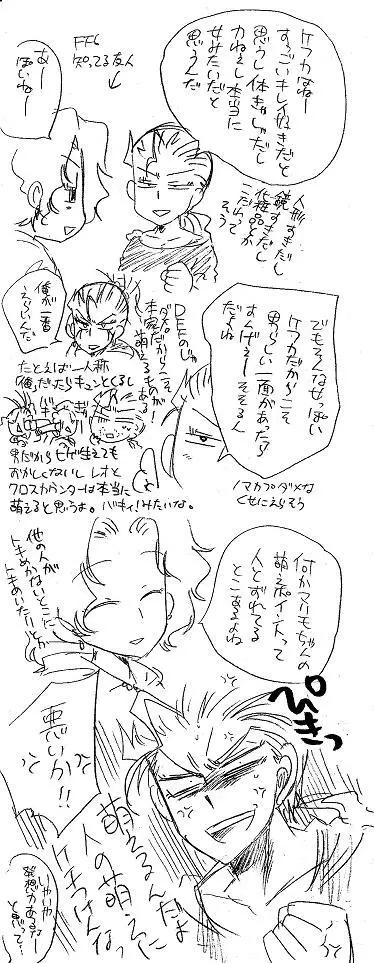 ケフカはねー
すっごいキレイ好きだと
思うし体きゃしゃだし
力ねぇし本当に
女みたいだと
思うんだ
FF6
知ってる友人
あー
ぽいねー
人形すきだし
鏡すきだし
化粧品とか
こだわって
そう
でもそんな
ケフカだからこそ
男らしい一面があったら
すんげぇーそそるん
だよね
俺が一番
えらいんだ
本家だからこそ
萌えるものが
ある
たとえば一人称
俺だったらキュンとくるし
男だからヒゲ生えても
おかしくないし レオと
クロスカウンターは本当に
萌えると思うよ。バキィ!みたいな。
ノマカプダメな
くせにえらそう
何かマリモちゃんの
萌えポイントって
人とずれてる
とこあるよね
他の人が
トキめかないとこに
トキめいたりとか
ぴきっ
悪いか!!
萌えるんだよ
人の萌えに
ケチつけんなっ
いやいや
発想力あるなー
と思って…